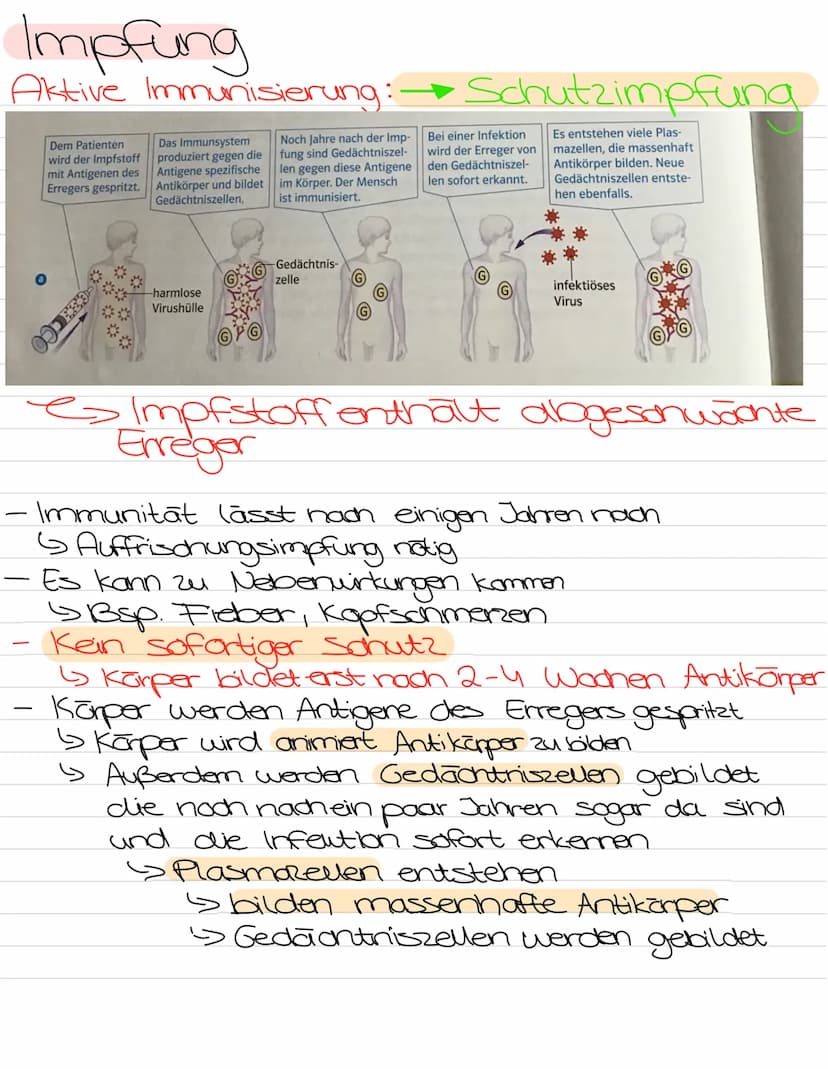 Impfung
Aktive Immunisierung: → Schutzimpfung
Dem Patienten
wird der Impfstoff
mit Antigenen des
Erregers gespritzt.
Das Immunsystem
produziert gegen die
Antigene spezifische
Antikörper und bildet
Gedächtniszellen.
Noch Jahre nach der Imp-
fung sind Gedächtniszel-
len gegen diese Antigene
im Körper. Der Mensch
ist immunisiert.
Bei einer Infektion
wird der Erreger von
den Gedächtniszel-
len sofort erkannt.
Es entstehen viele Plas-
mazellen, die massenhaft
Antikörper bilden. Neue
Gedächtniszellen entste-
hen ebenfalls.
a
harmlose
Virushülle
G G
G G
Gedächtnis-
zelle
G
G
G
G
G
infektiöses
Virus
G G
G G
↳ Impfstoff enthält abgeschwächte
Erreger
- Immunität lässt nach einigen Jahren nach
↳ Auffrischungsimpfung nötig
- Es kann zu Nebenwirkungen kommen
↳ Bsp. Fieber, Kopfschmerzen
- Kein sofortiger Schutz
↳ Körper bildet erst nach 2-4 Wochen Antikörper
- Körper werden Antigene des Erregers gespritzt
↳ Körper wird animiert Antikörper zu bilden
↳ Außerdem werden Gedächtniszellen gebildet
die noch nach ein paar Jahren sogar da sind
und die Infektion sofort erkennen
↳ Plasmazellen entstehen
↳ bilden massenhafte Antikörper
↳ Gedächtniszellen werden gebildet